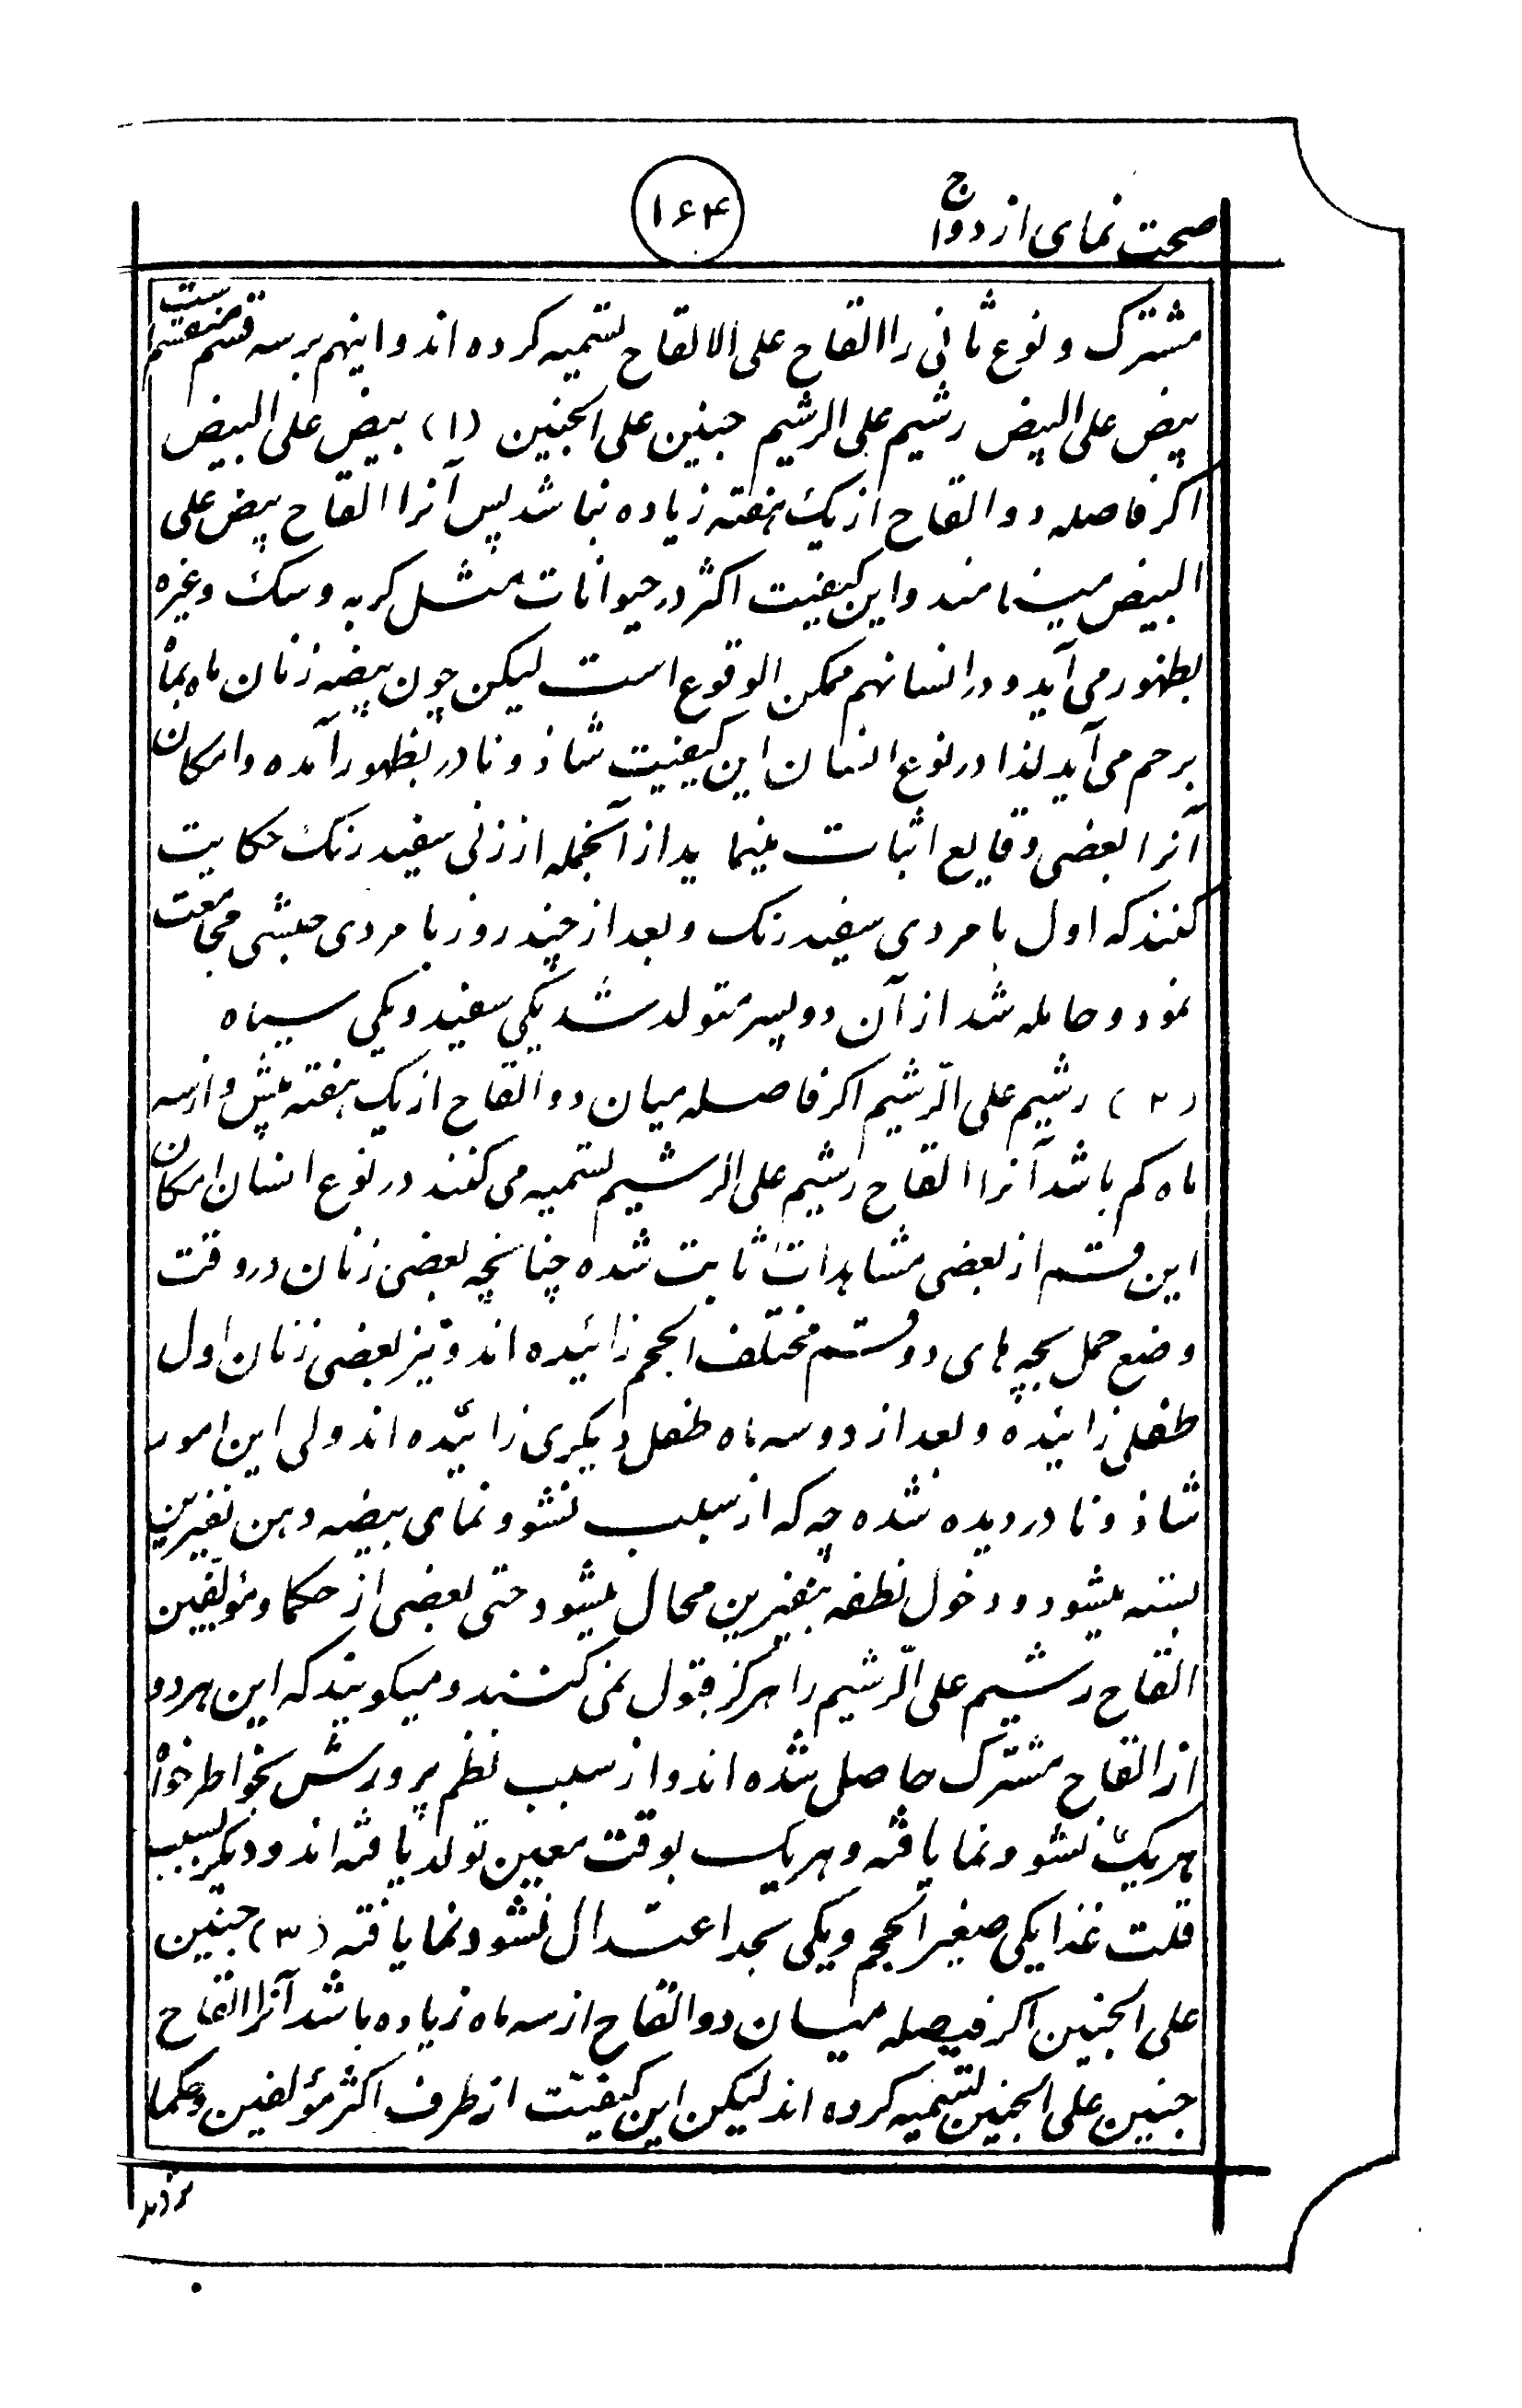 صحت نمای ازدواج
۱۶۴
مشترک و نوع ثانی را القاح علی الالقاح تسمیه کرده اند و اینهم بر سه قسم منقسم ست
بیض علی البیض رشیم علی الرشیم جنین علی الجنین (۱) بیض علی البیض
اکر فاصله دو القاح از یک هفته زیاده نباشد پس آنرا القاح بیض علی
البیض مینامند و این کیفیت اکثر در حیوانات مثل کربه و سک وغیره
بظهور می آید و در انسانهم ممکن الوقوع است لیکن چون بیضه زنان ماه بماه
برحم می آید لذا در نوع انسان این کیفیت شاذ و نادر بظهور آمده و امکان
آنرا بعضی وقایع اثبات مینماید از آنجمله از زنی سفید رنک حکایت
کنند که اول با مردی سفید رنک و بعد از چند روز با مردی حبشی مجامعت
نمود و حامله شد از آن دو پسر متولد شد یکی سفید و یکی سیاه
(۲) رشیم علی الرّشیم اکر فاصله میان دو القاح از یک هفته بیش و از سه
ماه کم باشد آنرا القاح رشیم علی الرشیم تسمیه می کنند در نوع انسان امکان
این قسم از بعضی مشاهدات ثابت شده چنانچه بعضی زنان در وقت
وضع حمل بچه های دو قسم مختلف الحجم زائیده اند و نیز بعضی زنان اول
طفلی زائیده و بعد از دو سه ماه طفل دیکری زائیده اند ولی این امور
شاذ و نادر دیده شده چه که از سبب نشو و نمای بیضه دهن نفیرین
بسته میشود و دخول نطفه بنفیرین محال میشود حتی بعضی از حکما و مؤلفین
القاح رشیم علی الرّشیم را هرکز قبول نمی کنند و میکویند که این هر دو
از القاح مشترک حاصل شده اند و از سبب نظم پرورش بخواطر خواه
هر یک نشو و نما یافته و هر یک بوقت معین تولد یافته اند و دیکر بسبب
قلت غذا یکی صغیر الحجم و یکی بحد اعتدال نشو و نما یافته (۳) جنین
علی الجنین اکر فیصله میان دو القاح از سه ماه زیاده باشد آنرا القاح
جنین علی الجنین تسمیه کرده اند لیکن این کیفیت از طرف اکثر مؤلفین و حکما